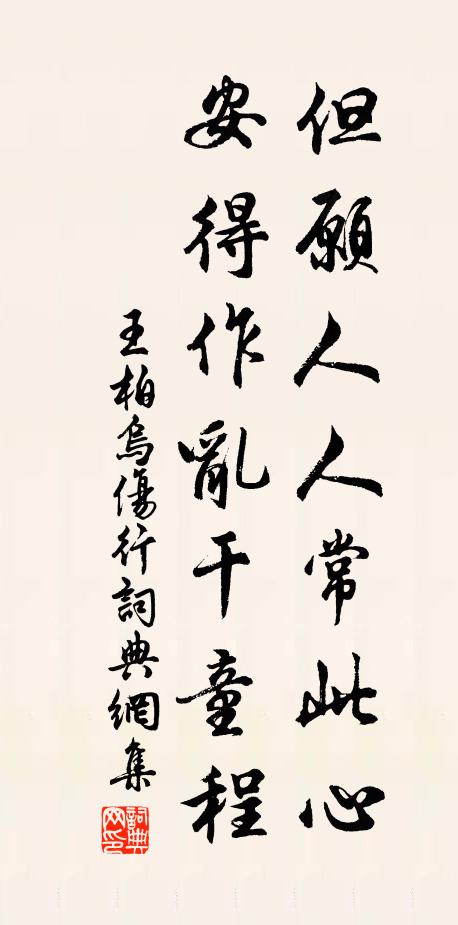 但願人人常此心
安得作亂干童程
王柏烏傷行詞典網集
詞典網印